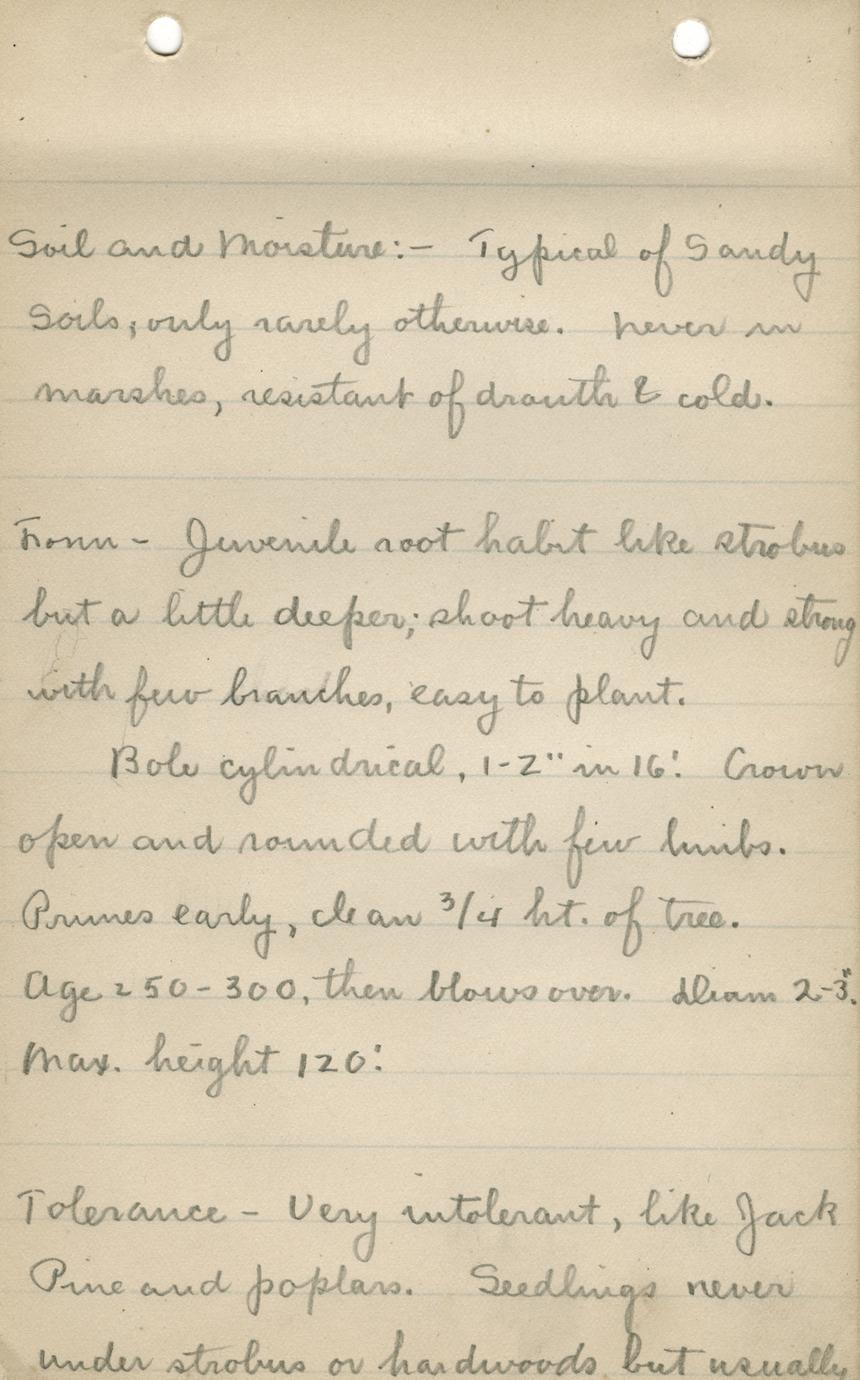 Soil and Moisture:- Typical of Sandy
Soils; only rarely otherwise. Never in
marshes, resistant of drouth & cold.
Form - Juvenile root habit like strobus
but a little deeper; shoot heavy and strong
with few branches, easy to plant.
Bole cylindrical, 1-2" in 16'. Crown
open and rounded with few limbs.
Prunes early, clean 3/4 ht. of tree.
Age 250-300, then blows over. Diam 2-3".
Max. height 120'.
Tolerance - Very intolerant, like Jack
Pine and poplars. Seedlings never
under strobus or hardwoods but usually